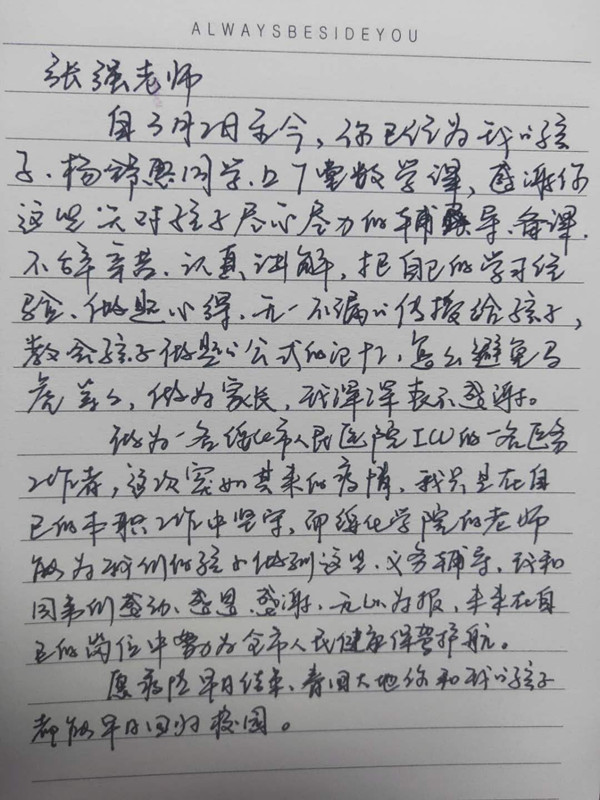 ALWAYSBESIDEYOU
张强老师
自3月2日至今，你已经为我的孩
子、杨 同学上7堂数学课，感谢你
这些天对孩子尽心尽力的辅导、备课、
不辞辛苦、认真讲解，把自己的学习经
验、做题心得、无一不漏的传授给孩子，
教会孩子做题的公式的记忆，怎么避免马
虎等等，做为家长，我深深表示感谢。
做为一名绥化市人民医院ICU的一名医务
工作者，这次突如其来的疫情，我只是在自
己的本职工作中坚守，而绥化学院的老师
能为我们的孩子做到这些、义务辅导，我和
同事们感动、感恩、感谢、无以为报，未来在自
己的岗位中努力为全市人民健康保驾护航。
愿疫情早日结束、春回大地你和我的孩子
都能早日回归校园。